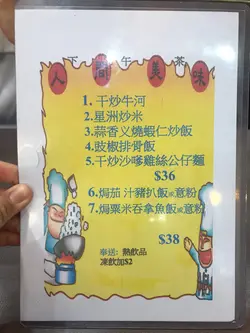 下午茶
人間美味
1. 干炒牛河
2. 星洲炒米
3. 蒜香义燒蝦仁炒飯
4. 豉椒排骨飯
5. 干炒沙嗲雞絲公仔麵
$36
6. 焗茄汁豬扒飯或意粉
7. 焗粟米吞拿魚飯或意粉
$38
奉送: 熱飲品
凍飲加$2